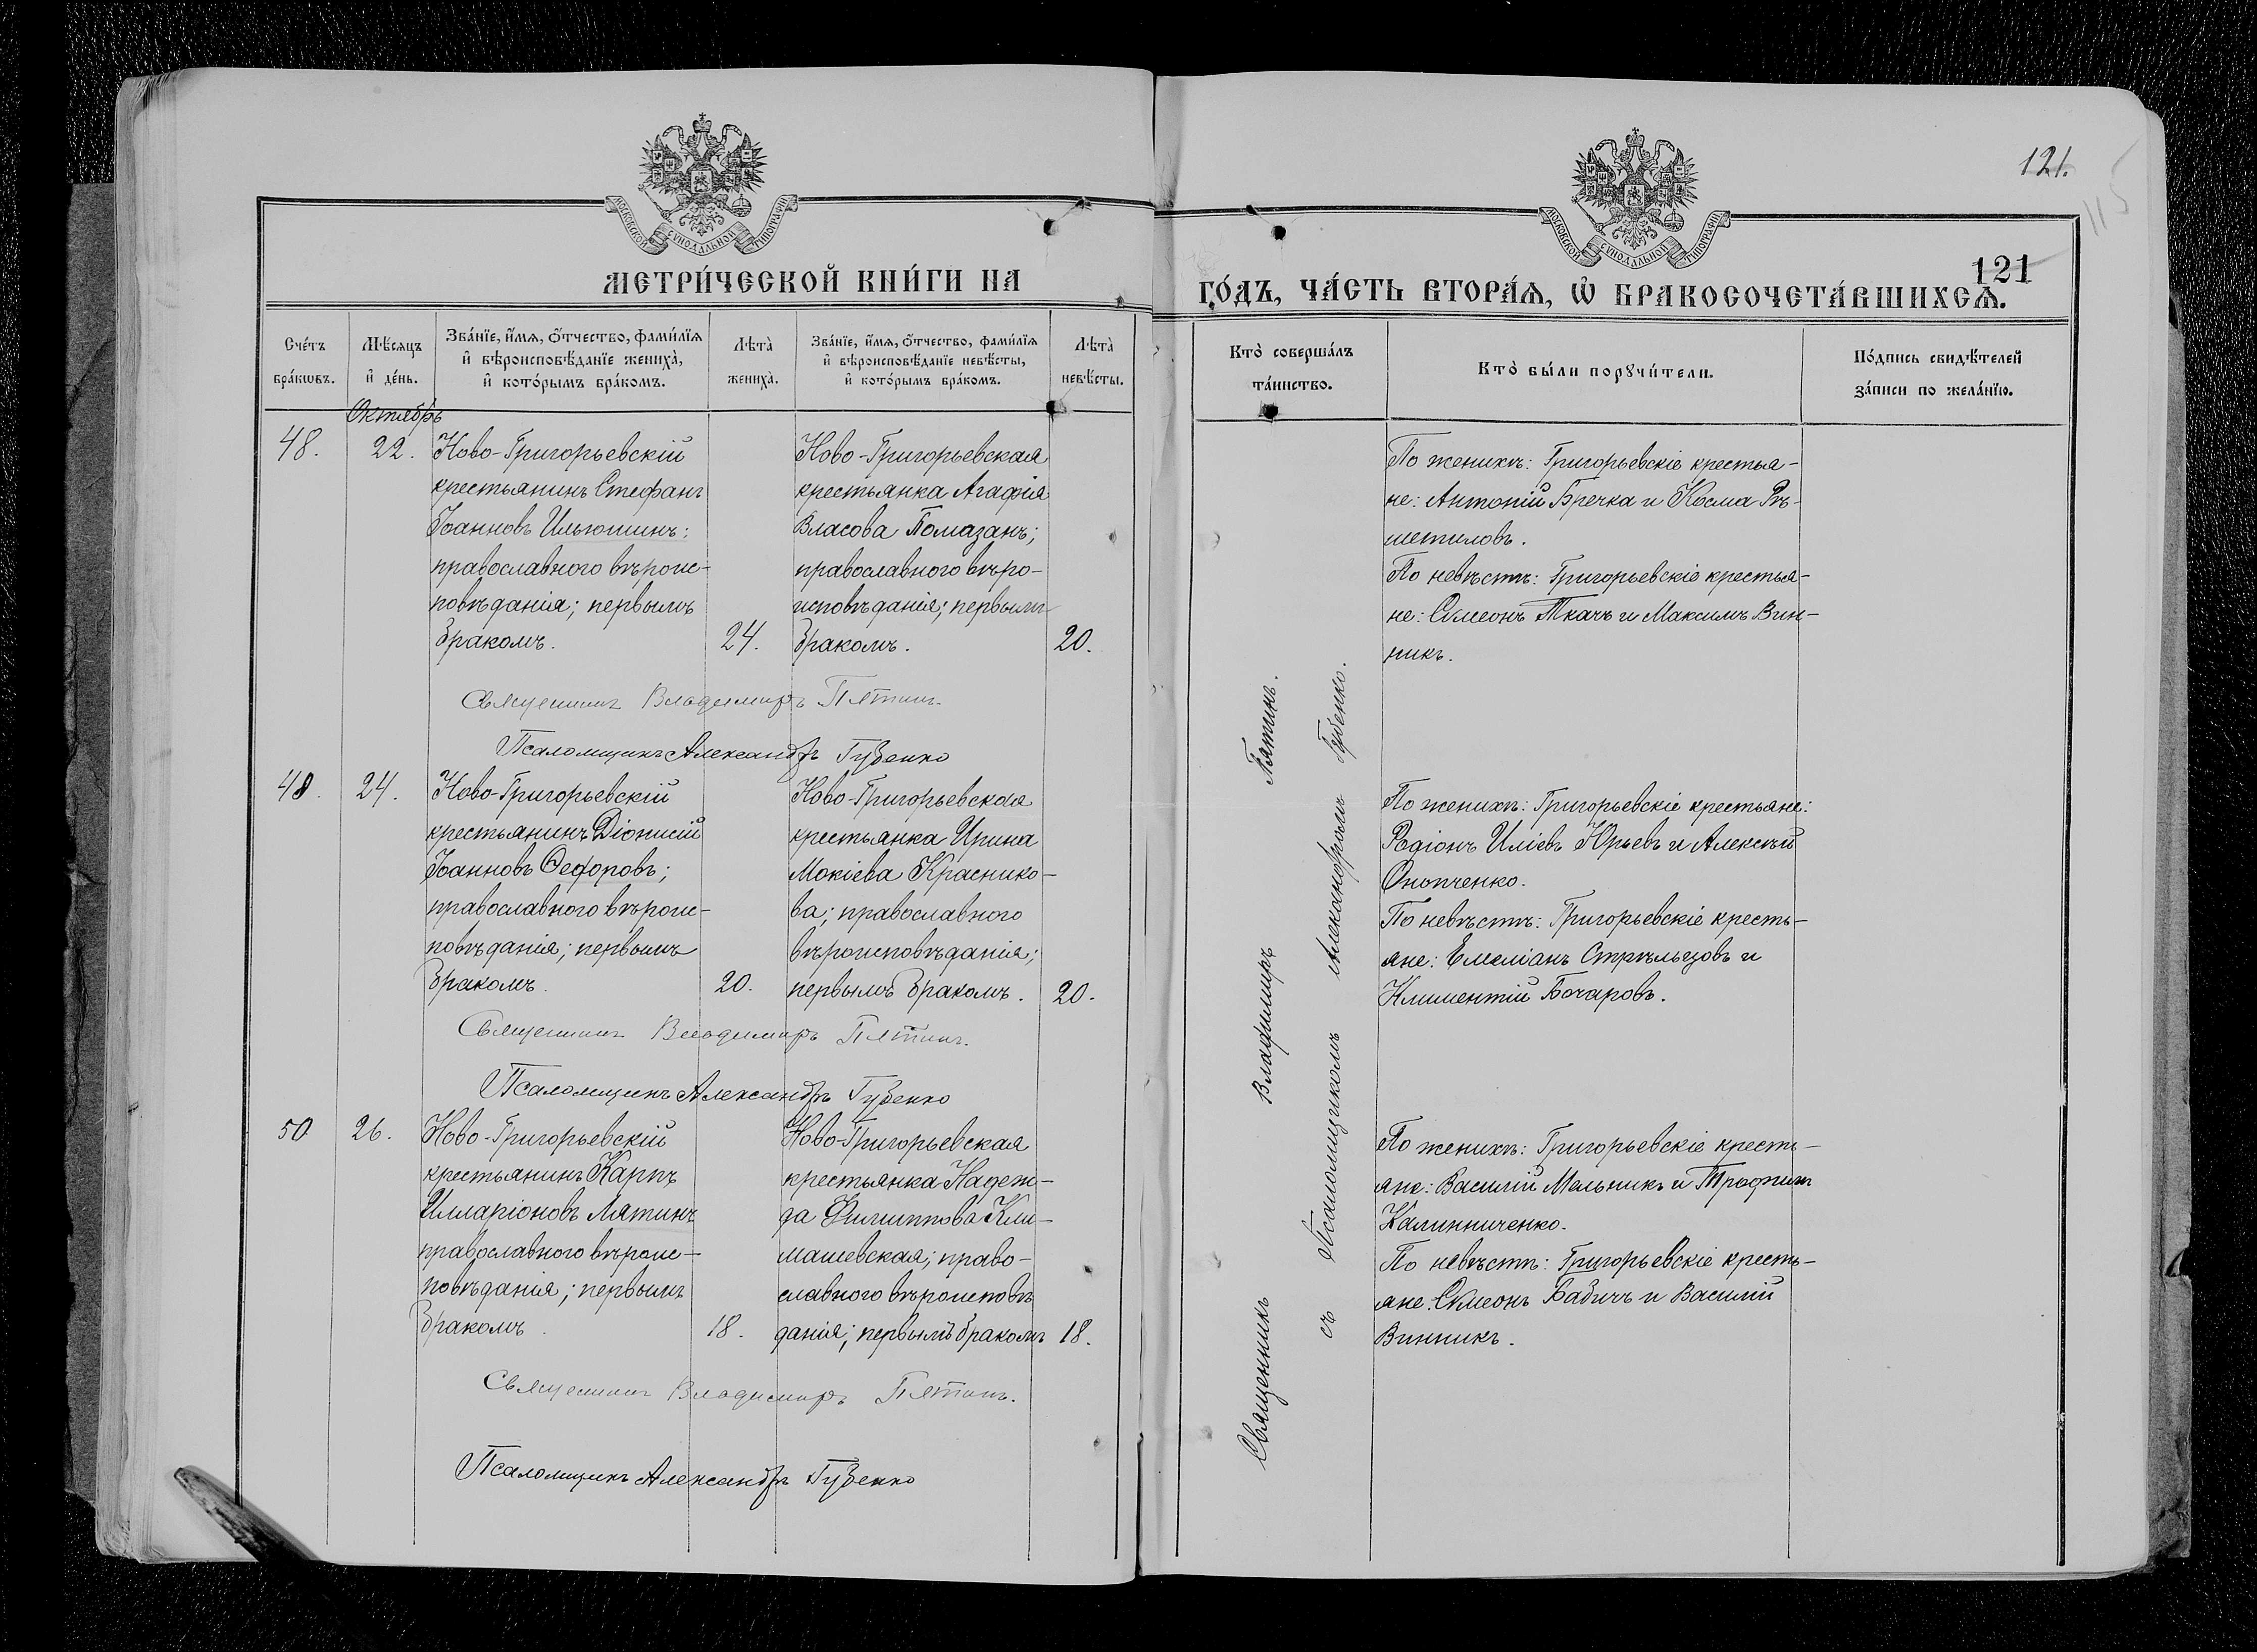 121.
115
МОСКОВСКОЙ СѴНОДАЛЬНОЙ ТИПОГРАФІИ
МОСКОВСКОЙ СѴНОДАЛЬНОЙ ТИПОГРАФІИ
121
МЕТРИ́ЧЕСКОЙ КНИ́ГИ НА
ГО́ДЪ, ЧА́СТЬ ВТОРА́Ѧ, Ѽ БРАКОСОЧЕТА́ВШИХСѦ.
Сче́тъ бра́кѡвъ.
Мѣ́сяцъ и҆ де́нь.
Зва́нїе, и҆́мѧ, ѻ҆́тчество, фами́лїѧ
и҆ вѣроисповѣ́данїе жениха̀,
и҆ кото́рымъ бра́комъ.
Лѣта̀ жениха̀.
Зва́нїе, и҆́мѧ, ѻ҆́тчество, фами́лїѧ
и҆ вѣроисповѣ́данїе невѣ́сты,
и҆ кото́рымъ бра́комъ.
Лѣта̀ невѣ́сты.
Кто̀ соверша́лъ
та́инство.
Кто̀ бы́ли порꙋчи́тели.
По́дпись свидѣ́телей
за́писи по жела́нїю.
Октябрь
48.
22.
Ново-Григорьевскій
крестьянинъ Стефанъ
Іоанновъ Ильюшинъ:
православного вѣроис-
повѣданія; первымъ
бракомъ.
24.
Ново-Григорьевская
крестьянка Агафія
Власова Помазанъ;
православного вѣро-
исповѣданія; первымъ
бракомъ.
20.
По женихѣ: Григорьевскіе крестья-
не: Антоній Бречка и Косма Рѣ-
шетиловъ.
По невѣстѣ: Григорьевскіе крестья-
не: Симеонъ Ткачъ и Максимъ Вин-
никъ.
Священникъ Владимиръ Пятинъ.
Псаломщикъ Александръ Губенко
49.
24.
Ново-Григорьевскій
крестьянинъ Діонисій
Іоанновъ Ѳедоровъ;
православного вѣроис-
повѣданія; первымъ
бракомъ.
20.
Ново-Григорьевская
крестьянка Ирина
Мокіева Краснико-
ва; православного
вѣроисповѣданія;
первымъ бракомъ.
20.
По женихѣ: Григорьевскіе крестьяне:
Родіонъ Иліевъ Юрьевъ и Алексѣй
Онопченко.
По невѣстѣ: Григорьевскіе кресть-
яне: Емеліанъ Стрѣльцовъ и
Климентій Бочаровъ.
Священникъ Владимиръ Пятинъ.
Псаломщикъ Александръ Губенко
50
26.
Ново-Григорьевскій
крестьянинъ Карпъ
Илларіоновъ Лятинъ
православного вѣроис-
повѣданія; первымъ
бракомъ.
18.
Ново-Григорьевская
крестьянка Надеж-
да Филиппова Кли-
машевская; право-
славного вѣроисповѣ
данія; первымъ бракомъ
18.
По женихѣ: Григорьевскіе кресть-
яне: Василій Мельникъ и Трофимъ
Калинниченко.
По невѣстѣ: Григорьевскіе кресть-
яне: Симеонъ Бабичъ и Василій
Винникъ.
Священникъ Владимиръ Пятинъ.
Псаломщикъ Александръ Губенко
Священникъ Владимиръ Пятинъ.
съ Псаломщикомъ Александромъ Губенко.